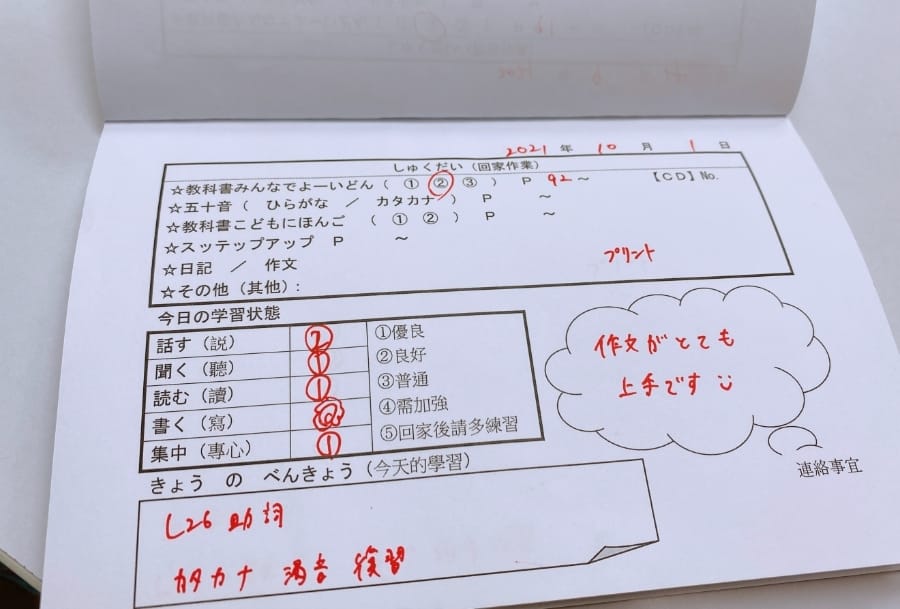 2021 年 10 月 1 日
しゅくだい（回家作業）
☆教科書みんなでよーいどん（ ① ② ③ ） P 92 ～ 【CD】No.
☆五十音（ ひらがな ／ カタカナ ） P ～
☆教科書こどもにほんご （ ① ② ） P ～
☆スッテップアップ P ～
☆日記 ／ 作文
プリント
☆その他（其他）：
今日の学習状態
話す（説）
聞く（聽） ①
読む（讀） ①
書く（寫）
集中（專心） ①
①優良
②良好
③普通
④需加強
⑤回家後請多練習
作文がとても
上手です
連絡事宜
きょう の べんきょう（今天的學習）
L26 助詞
カタカナ 濁音 復習